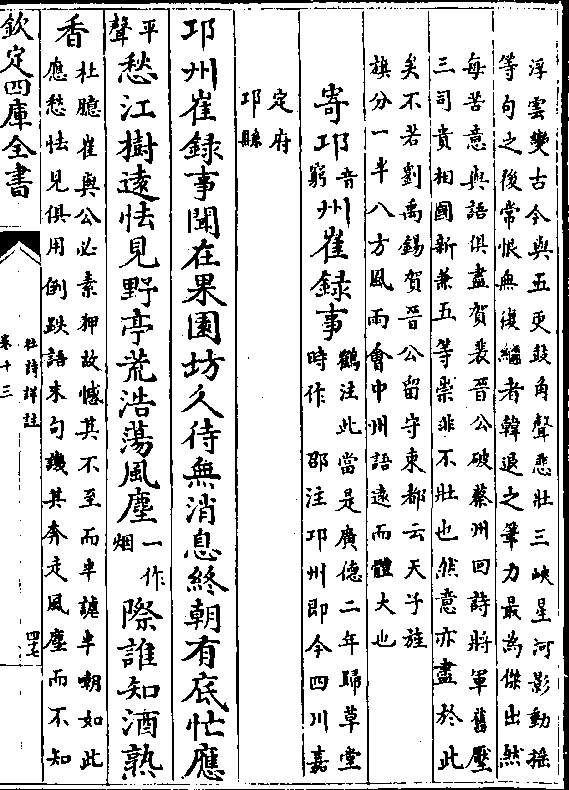 浮雲變古今與五更鼓角聲悲壯三峽星河影動揺
等句之後常恨無復繼者韓退之筆力最為傑出然
每苦意與語俱盡賀裴晉公破蔡州回詩將軍舊壓
三司貴相國新兼五等崇非不壯也然意亦盡於此
矣不若劉禹錫賀晉公留守東都云天子旌
旗分一半八方風雨會中州語逺而體大也
寄邛音窮州崔録事
鶴注此當是廣德二年歸草堂
時作　邵注邛州即今四川嘉
定府
邛縣
邛州崔録事聞在果園坊久待無消息終朝有底忙應
平聲愁江樹逺怯見野亭荒浩蕩風塵一作烟際誰知酒熟
香
杜臆崔與公必素狎故憾其不至而半謔半嘲如此
應愁怯見俱用倒跌語末句譏其奔走風塵而不知
欽定四庫全書
杜詩詳註
卷十三
四十